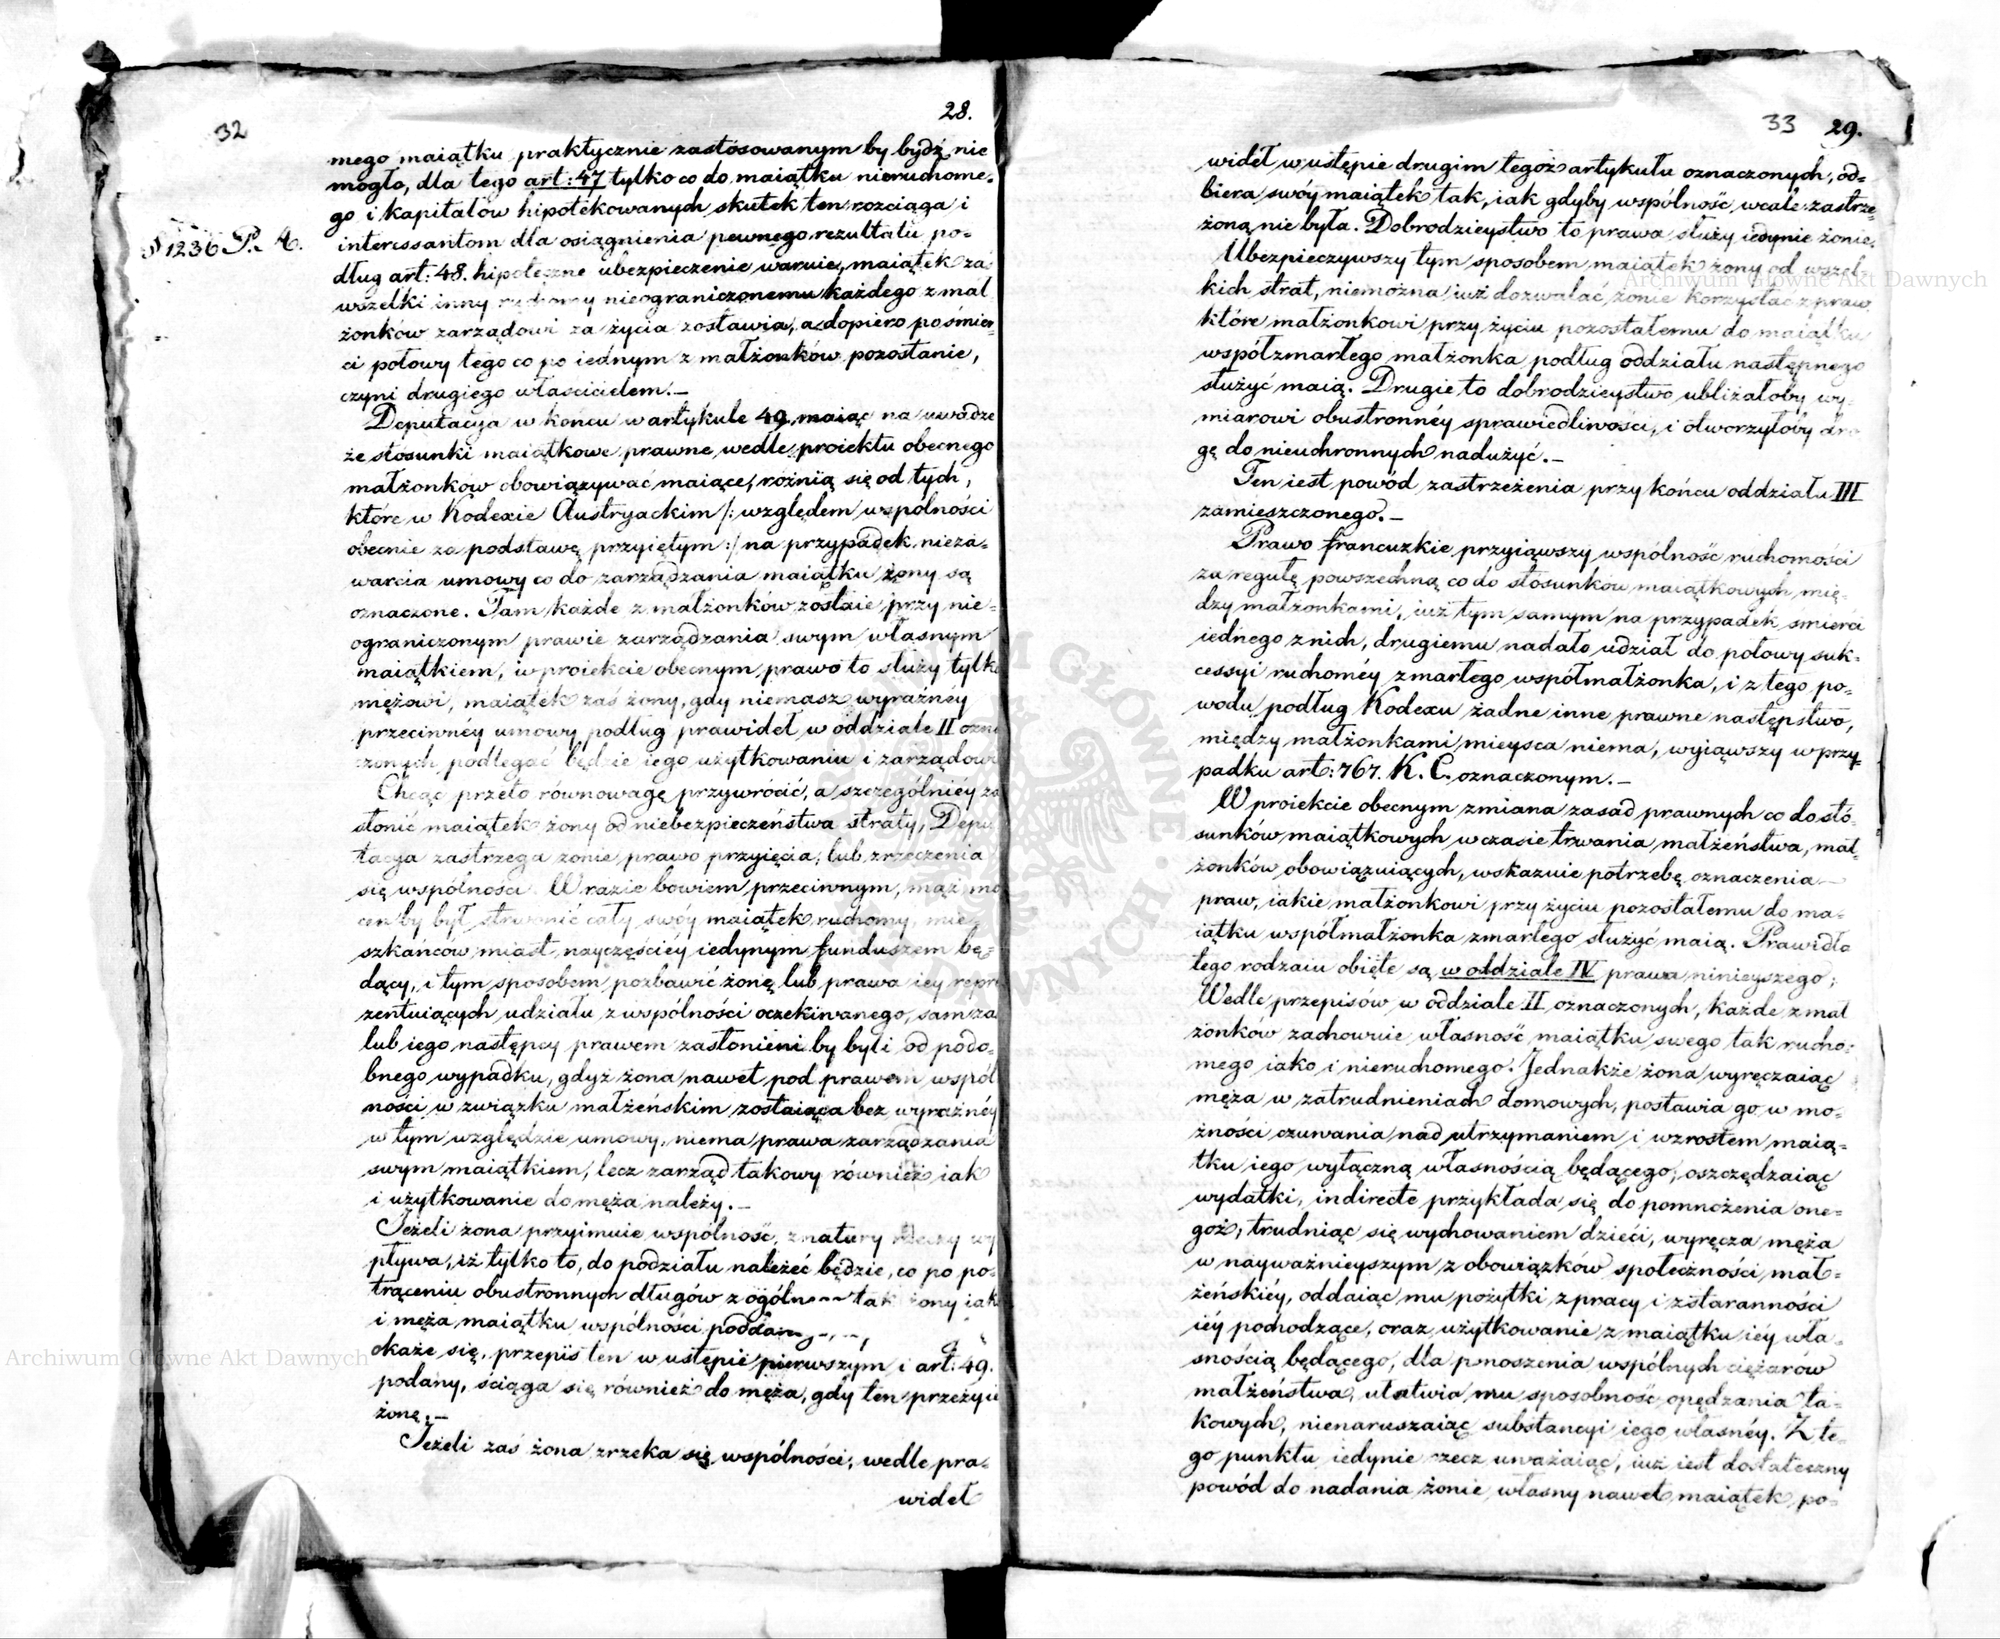 32
28.
mego maiątku praktycznie zastósowanym by bydź nie
mogło, dla tego art: 47 tylko co do maiątku nieruchome-
go i kapitałów hipotekowanych skutek ten rozciąga i
§ 1236 P. A.
interessantom dla osiągnienia pewnego rezultatu po=
dług art: 48. hipoteczne ubezpieczenie waruie, maiątek zaś
wszelki inny ruchomy nieograniczonemu każdego z mał
żonków zarządowi za życia zostawia, a dopiero po śmier=
ci połowy tego co po iednym z małżonków pozostanie,
czyni drugiego właścicielem.—
Deputacya w końcu w artykule 49. maiąc na uwadze
że stósunki maiątkowe prawne wedle proiektu obecnego
małżonków obowiązywać maiące, różnią się od tych,
które w Kodexie Austryackim /: względem wspólności
obecnie za podstawę przyiętym :/ na przypadek nieza=
warcia umowy co do zarządzania maiątku żony są
oznaczone. Tam każde z małżonków zostaie przy nie=
ograniczonym prawie zarządzania swym własnym
maiątkiem, w proiekcie obecnym prawo to służy tylko
mężowi, maiątek zaś żony, gdy niemasz wyraźnéy
przecinnéy umowy podług prawideł w oddziale II ozna
czonych podlegać będzie iego użytkowaniu i zarządowi
Chcąc przeto równowagę przywrócić, a szczególniéy za
słonić maiątek żony od niebezpieczeństwa straty, Depu
tacya zastrzega żonie prawo przyięcia, lub zrzeczenia
się wspólności. W razie bowiem przeciwnym, mąż mo
cen by był strwonić cały swóy maiątek ruchomy, mie=
szkańców miast nayczęściéy iedynym funduszem bę=
dący, i tym sposobem pozbawić żonę lub prawa iey repre
zentuiących udziału z wspólności oczekiwanego, sam zaś
lub iego następcy prawem zasłonieni by byli od podo=
bnego wypadku, gdyż żona nawet pod prawem wspól
ności w związku małżeńskim zostaiąca bez wyraźnéy
w tym względzie umowy, niema prawa zarządzania
swym maiątkiem, lecz zarząd takowy również iak
i użytkowanie do męża należy.—
Jeżeli żona przyimuie wspólność, z natury rzeczy wy
pływa, iż tylko to, do podziału należeć będzie, co po po=
trąceniu obustronnych długów z tak żony iak
i męża maiątku wspólności
okaże się. przepis ten w ustępie pierwszym i art: 49.
podany, ściąga się również do męża, gdy ten przeżyie
żonę.—
Jeżeli zaś żona zrzeka się wspólności, wedle pra=
wideł
33
29.
wideł w ustępie drugim tegoż artykułu oznaczonych, od=
biera swóy maiątek tak, iak gdyby wspólność wcale zastrze=
żoną nie była. Dobrodzieystwo to prawa służy iedynie żonie.
Ubezpieczywszy tym sposobem maiątek żony od wszel=
kich strat, niemożna iuż dozwalać żonie korzystać z praw
które małżonkowi przy życiu pozostałemu do maiątku
współzmarłego małżonka podług oddziału następnego
służyć maią. Drugie to dobrodzieystwo ubliżałoby wy=
miarowi obustronnéy sprawiedliwości, i otworzyłoby dro
gę do nieuchronnych nadużyć.—
Ten iest powód zastrzeżenia przy końcu oddziału III
zamieszczonego.—
Prawo francuzkie przyiąwszy wspólność ruchomości
za regułę powszechną co do stósunków maiątkowych mię=
dzy małżonkami, iuż tym samym na przypadek śmierci
iednego z nich, drugiemu nadało udział do połowy suk=
cessyi ruchoméy zmarłego współmałżonka, i z tego po=
wodu podług Kodexu żadne inne prawne następstwo,
między małżonkami mieysca niema, wyiąwszy w przy=
padku art: 767. K. C. oznaczonym.—
W proiekcie obecnym zmiana zasad prawnych co do stó=
sunków maiątkowych w czasie trwania małżeństwa, mał=
żonków obowiązuiących, wskazuie potrzebę oznaczenia—
praw, iakie małżonkowi przy życiu pozostałemu do ma=
iątku współmałżonka zmarłego służyć maią. Prawidła
tego rodzaiu obięte są w oddziale IV prawa ninieyszego;
Wedle przepisów w oddziale II oznaczonych, każde z mał
żonków zachowuie własność maiątku swego tak rucho=
mego iako i nieruchomego. Jednakże żona wyręczaiąc
męża w zatrudnieniach domowych, postawia go w mo=
żności czuwania nad utrzymaniem i wzrostem maią=
tku iego wyłączną własnością będącego, oszczędzaiąc
wydatki, indirecte przykłada się do pomnożenia one=
goż, trudniąc się wychowaniem dzieći, wyręcza męża
w nayważnieyszym z obowiązków społeczności mał=
żeńskiéy, oddaiąc mu pożytki z pracy i z staranności
iéy pochodzące, oraz użytkowanie z maiątku iéy wła=
snością będącego, dla ponoszenia wspólnych ciężarów
małżeństwa, ułatwia mu sposobność opędzania ta=
kowych, nienaruszaiąc substancyi iego własnéy. Z te=
go punktu iedynie rzecz uważaiąc, iuż iest dostateczny
powód do nadania żonie własny nawet maiątek po=
Archiwum Główne Akt Dawnych
Archiwum Główne Akt Dawnych